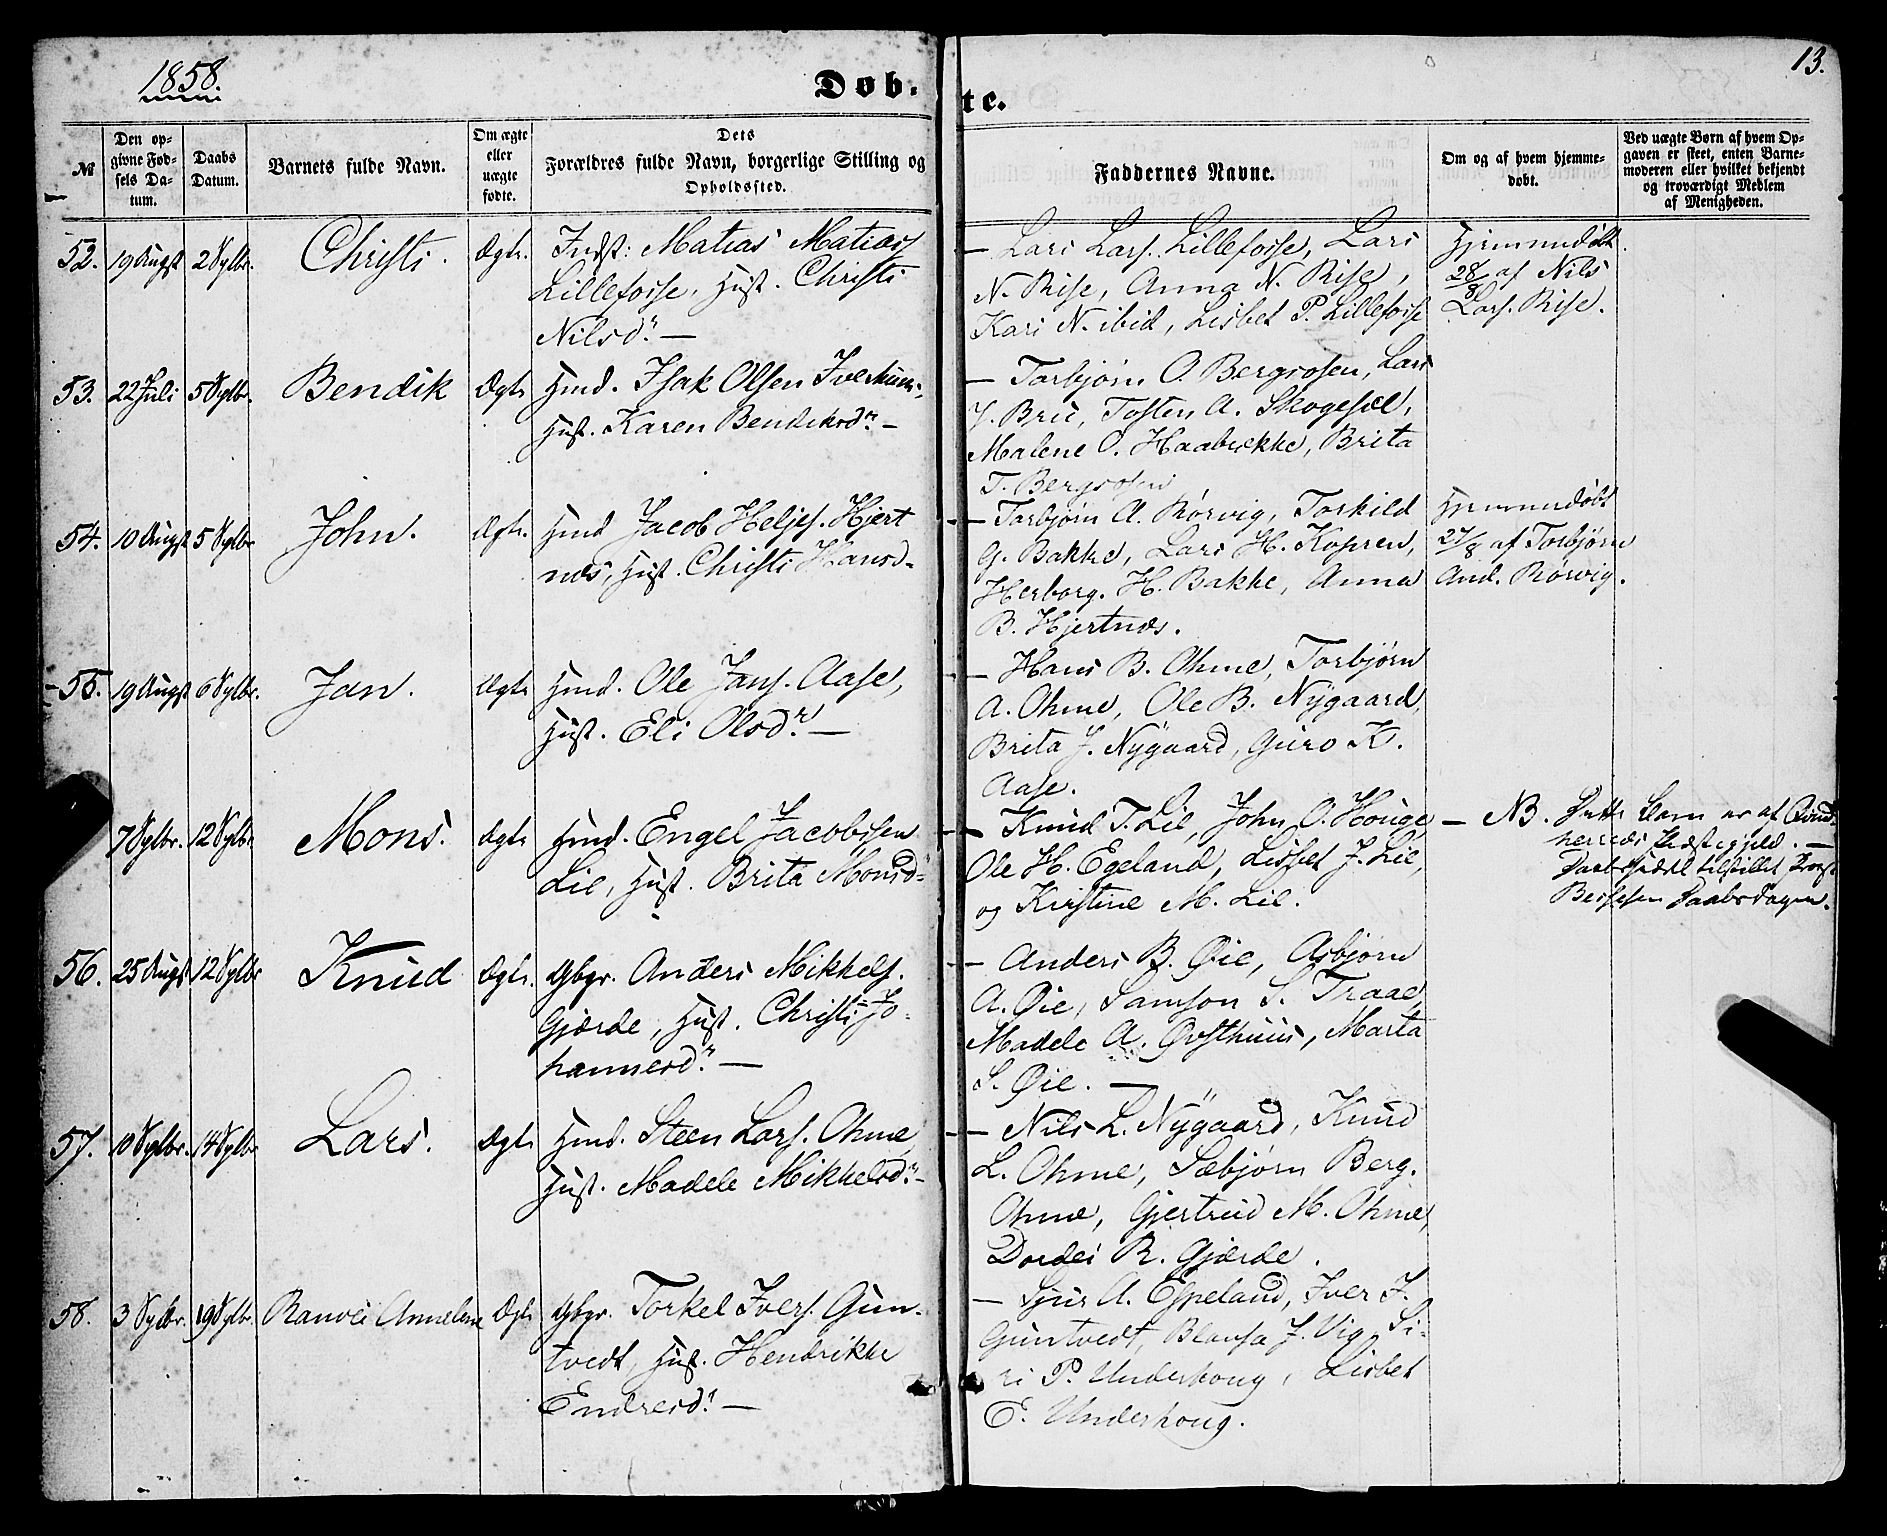 1858.
Døb-
te.
13.
№
Den op-
givne Fød-
sels Da-
tum.
Daabs
Datum.
Barnets fulde Navn.
Om ægte
eller
uægte
fødte.
Dets
Forældres fulde Navn, borgerlige Stilling og
Opholdssted.
Faddernes Navne.
Om og af hvem hjemme-
døbt.
Ved uægte Børn af hvem Op-
gaven er skeet, enten Barne-
moderen eller hvilket bekjendt
og troværdigt Medlem
af Menigheden.
52. 19 Augst 2 Sptbr. Christi. Ægte.
Indst: Matias Matiass
Lillefosse, Hust. Christi
Nilsd.
— Lars Larss. Lillefosse, Lars
N. Rise, Anna N. Rise,
Kari N. ibid, Lisbet P. Lillefosse
Hjemmedøbt
28/8 af Nils
Larss. Rise.
53. 22 Juli 5 Sptbr. Bendik Ægte
Hmd. Isak Olsen
Hust. Karen Bendiksd. —
— Torbjørn O. Bergsosen, Lars
J. Bru, Tosten A. Skogesæl,
Malene O. Haabrekke, Brita
T. Bergsosen
54. 10 Augst 5 Sptbr John. Ægte.
Hmd Jacob Heljes. Hjert
næs, Hust. Christi Hansd-
— Torbjørn A. Rørvig, Torkild
G. Bakke, Lars H. Kopren,
Herborg. H. Bakke, Anna
B. Hjertnæs.
Hjemmedøbt
27/8 af Torbjørn
And. Rørvig.
55. 19 Augst 6 Sptbr. Jan. Ægte
Hmd. Ole Jans. Aase,
Hust. Eli Olsd. —
— Hans B. Ohme, Torbjørn
A. Ohme, Ole B. Nygaard,
Brita J. Nygaard, Guro K.
Aase.
7 Sptbr. 12 Sptbr Mons. Ægte
Hmd. Engel Jacobssen
Lie, Hust. Brita Monsd
— Knud T. Lie, John O. Houge
Ole H. Egeland, Lisbet J. Lie,
og Kirstine M. Lie.
— NB. Dette Barn er af Qvind-
herreds Præstegjeld. —
Daabsseddel tilstillet Provst
Daabsdagen.
56. 25 Augst 12 Sptbr Knud Ægte.
Gbgr. Anders Mikkels.
Gjærde, Hust. Christi Jo-
hannesd. —
— Anders B. Øie, Asbjørn
A. Øie, Samson S. Traae,
Madele A. Øvsthuus, Marta
S. Øie. —
57. 10 Sptbr. 14 Sptbr Lars. Ægte
Hmd. Steen Lars. Ohme,
Hust. Madele Mikkelsd. —
— Nils L. Nygaard, Knud
L. Ohme, Sæbjørn Berg.
Ohme, Gjertrud M. Ohme,
Dordei R. Gjærde.
58. 3 Sptbr. 19 Sptbr. Ranvei Annelene Ægte
Gbgr. Torkel Ivers. Gun-
tvedt, Hust. Hendrikke
Endresd. —
— Sjur A. Espeland, Iver I.
Guntvedt, Blansa J. Vig, Si-
ri P. Underhoug, Lisbet
E. Underhoug.